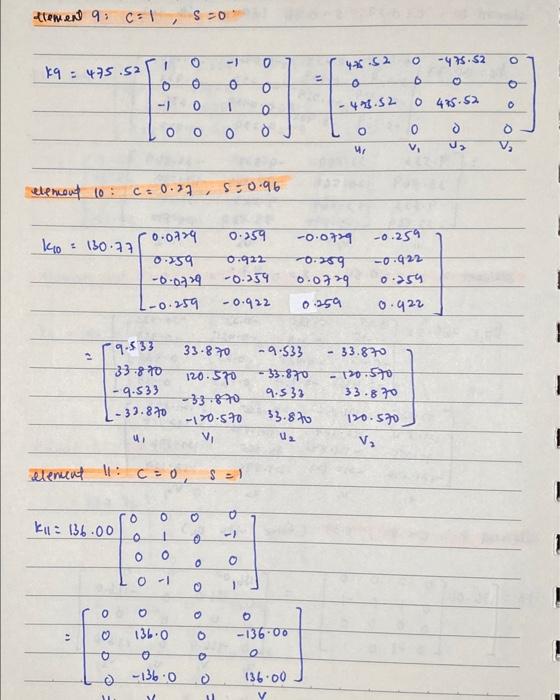 element 9: C=1, S=0
K9 = 475.52 [ 1 0 -1 0 ] = [ 475.52 0 -475.52 0 ]
0 0 0 0 0 0 0 0
-1 0 1 0 -475.52 0 475.52 0
0 0 0 0 0 0 0 0
u1 v1 u2 v2
element 10: C=0.27, S=0.96
K10 = 130.77 [ 0.0729 0.259 -0.0729 -0.259 ]
0.259 0.922 -0.259 -0.922
-0.0729 -0.259 0.0729 0.259
-0.259 -0.922 0.259 0.922
= [ 9.533 33.870 -9.533 -33.870 ]
33.870 120.570 -33.870 -120.570
-9.533 -33.870 9.533 33.870
-33.870 -120.570 33.870 120.570
u1 v1 u2 v2
element 11: C=0, S=1
K11 = 136.00 [ 0 0 0 0 ]
0 1 0 -1
0 0 0 0
0 -1 0 1
= [ 0 0 0 0 ]
0 136.0 0 -136.00
0 0 0 0
0 -136.0 0 136.00